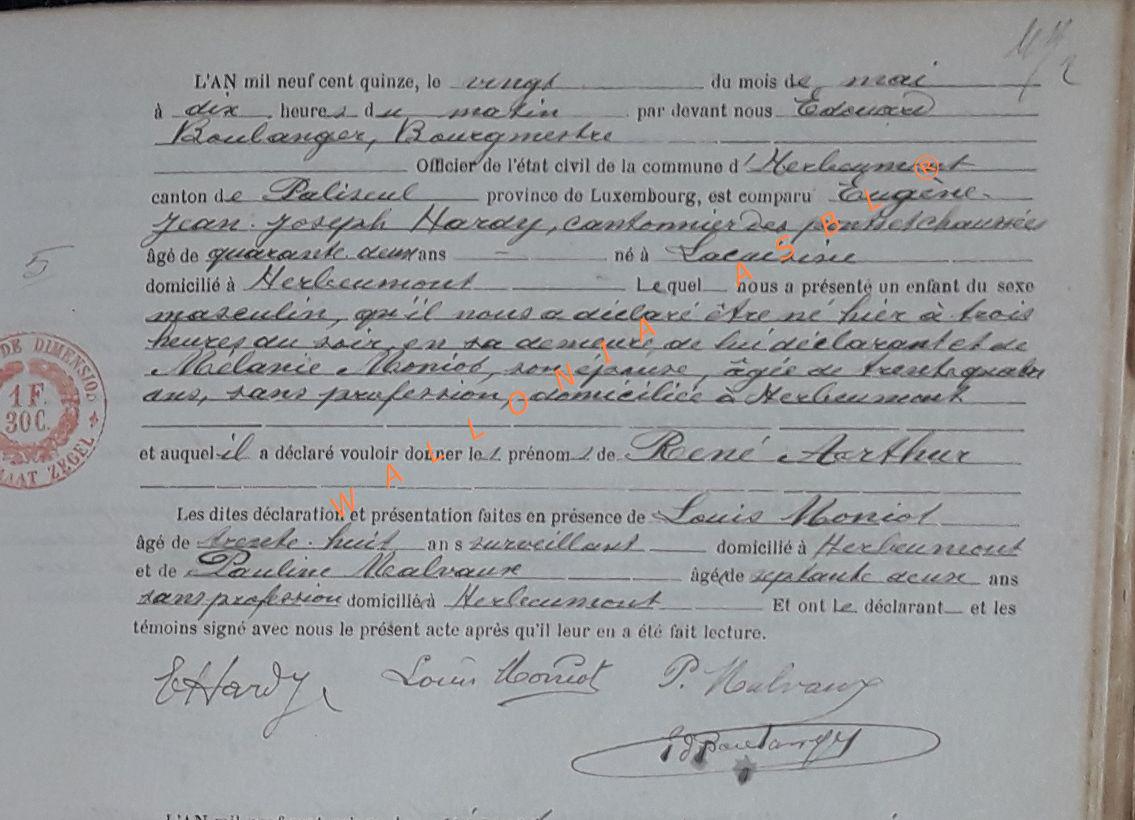 L'AN mil neuf cent quinze, le vingt du mois de mai
à dix heures du matin par devant nous Edouard
Boulanger, Bourgmestre
Officier de l'état civil de la commune d'Herbeumont
canton de Paliseul province de Luxembourg, est comparu Eugène
Jean Joseph Hardy, cantonnier des ponts et chaussées
âgé de quarante deux ans né à Lacuisine
domicilié à Herbeumont Lequel nous a présenté un enfant du sexe
masculin, qu'il nous a déclaré être né hier à trois
heures du soir, en sa demeure, de lui déclarant et de
Mélanie Moniot, son épouse, âgée de trente quatre
ans, sans profession, domiciliée à Herbeumont
et auquel il a déclaré vouloir donner les prénoms de René Arthur
Les dites déclaration et présentation faites en présence de Louis Moniot
âgé de trente-huit ans surveillant domicilié à Herbeumont
et de Pauline Malvaux âgée de septante deux ans
sans profession domiciliée à Herbeumont Et ont le déclarant et les
témoins signé avec nous le présent acte après qu'il leur en a été fait lecture.
EHardy Louis Moniot P. Malvaux
Ed Boulanger
5
DE DIMENSION
1 F.
30 C.
MAAT ZEGEL
WALLONIA ASBL ®
L'AN mil neuf cent